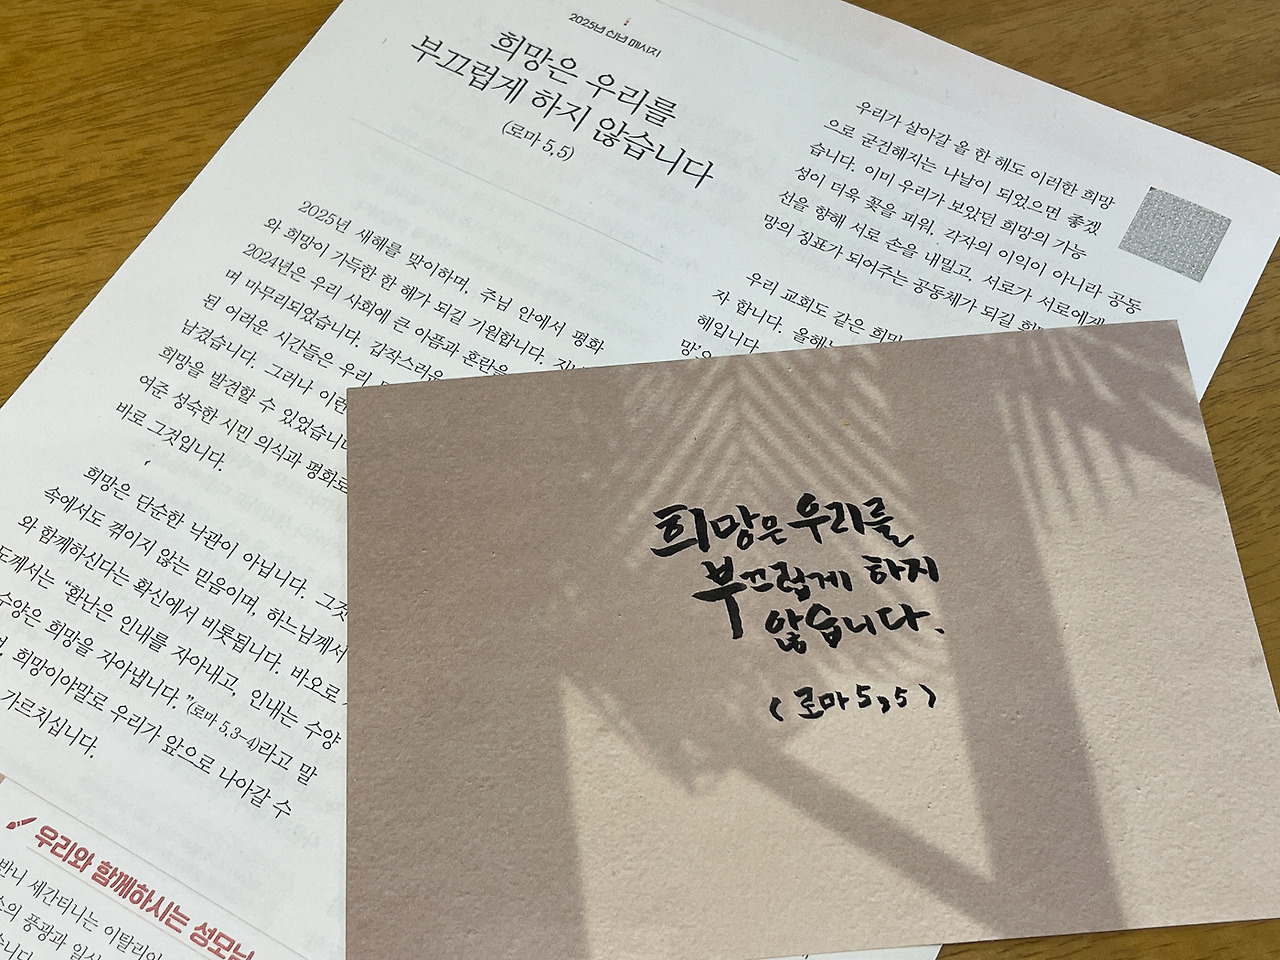 2025년 신년 메시지
희망은 우리를
부끄럽게 하지 않습니다
(로마 5,5)
2025년 새해를 맞이하며, 주님 안에서 평화
와 희망이 가득한 한 해가 되길 기원합니다.
2024년은 우리 사회에 큰 아픔과 혼란을
며 마무리되었습니다. 갑작스러운
된 어려운 시간들은 우리
남겼습니다. 그러나 이런
희망을 발견할 수 있었습니
여준 성숙한 시민 의식과 평화로
바로 그것입니다.
희망은 단순한 낙관이 아닙니다. 그것
속에서도 꺾이지 않는 믿음이며, 하느님께서
와 함께하신다는 확신에서 비롯됩니다. 바오로
도께서는 “환난은 인내를 자아내고, 인내는 수양
수양은 희망을 자아냅니다.”(로마 5,3-4)라고 말
희망이야말로 우리가 앞으로 나아갈 수
가르치십니다.
우리와 함께하시는 성모님
반니 세간티니는 이탈리아
의 풍광과
우리가 살아갈 올 한 해도 이러한 희망
으로 굳건해지는 나날이 되었으면 좋겠
습니다. 이미 우리가 보았던 희망의 가능
성이 더욱 꽃을 피워, 각자의 이익이 아니라 공동
선을 향해 서로 손을 내밀고, 서로가 서로에게
망의 징표가 되어주는 공동체가 되길
우리 교회도 같은 희망
자 합니다. 올해는
해입니다.
희망은 우리를
부끄럽게 하지
않습니다.
(로마 5,5)